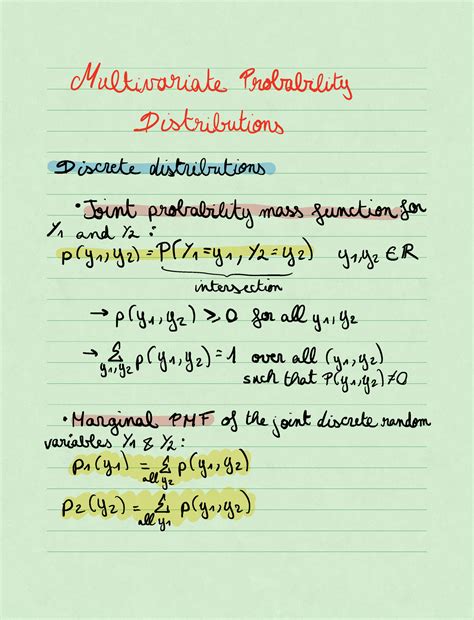 Multivariate Probability
Distributions
Discrete distributions
• Joint probability mass function for
Y1 and Y2 :
p(y1,y2) = P(Y1=y1, Y2=y2) y1,y2 ∈ ℝ
intersection
→ p(y1,y2) ⩾ 0 for all y1,y2
→ Σ p(y1,y2) = 1 over all (y1,y2)
y1,y2 such that P(y1,y2) ≠ 0
• Marginal PMF of the joint discrete random
variables Y1 & Y2 :
p1(y1) = Σ p(y1,y2)
all y2
p2(y2) = Σ p(y1,y2)
all y1